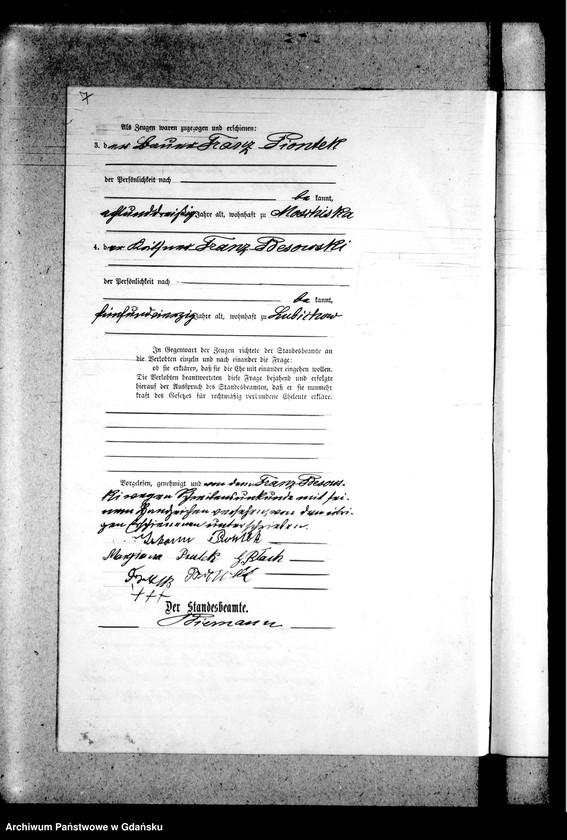 7
Als Zeugen waren zugezogen und erschienen:
3. der Bauer Franz Piontek
der Persönlichkeit nach
be kannt,
achtunddreißig Jahre alt, wohnhaft zu
4. der Käthner Franz Besowski
der Persönlichkeit nach
be kannt,
fünfundvierzig Jahre alt, wohnhaft zu Lubichow
In Gegenwart der Zeugen richtete der Standesbeamte an
die Verlobten einzeln und nach einander die Frage:
ob sie erklären, daß sie die Ehe mit einander eingehen wollen.
Die Verlobten beantworteten diese Frage bejahend und erfolgte
hierauf der Ausspruch des Standesbeamten, daß er sie nunmehr
kraft des Gesetzes für rechtmäßig verbundene Eheleute erkläre.
Vorgelesen, genehmigt und von dem Franz Besows-
ki wegen Schreibensunkunde mit sei-
nem Handzeichen versehen, von den übri-
gen Erschienenen unterschrieben.
Piontek
+++
Der Standesbeamte.